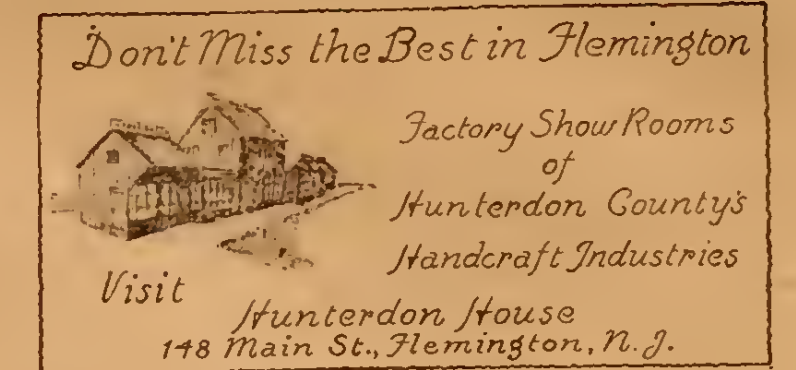 Don't Miss the Best in Flemington
Factory Show Rooms
of
Hunterdon County's
Handcraft Industries
Visit
Hunterdon House
148 Main St., Flemington, N.J.